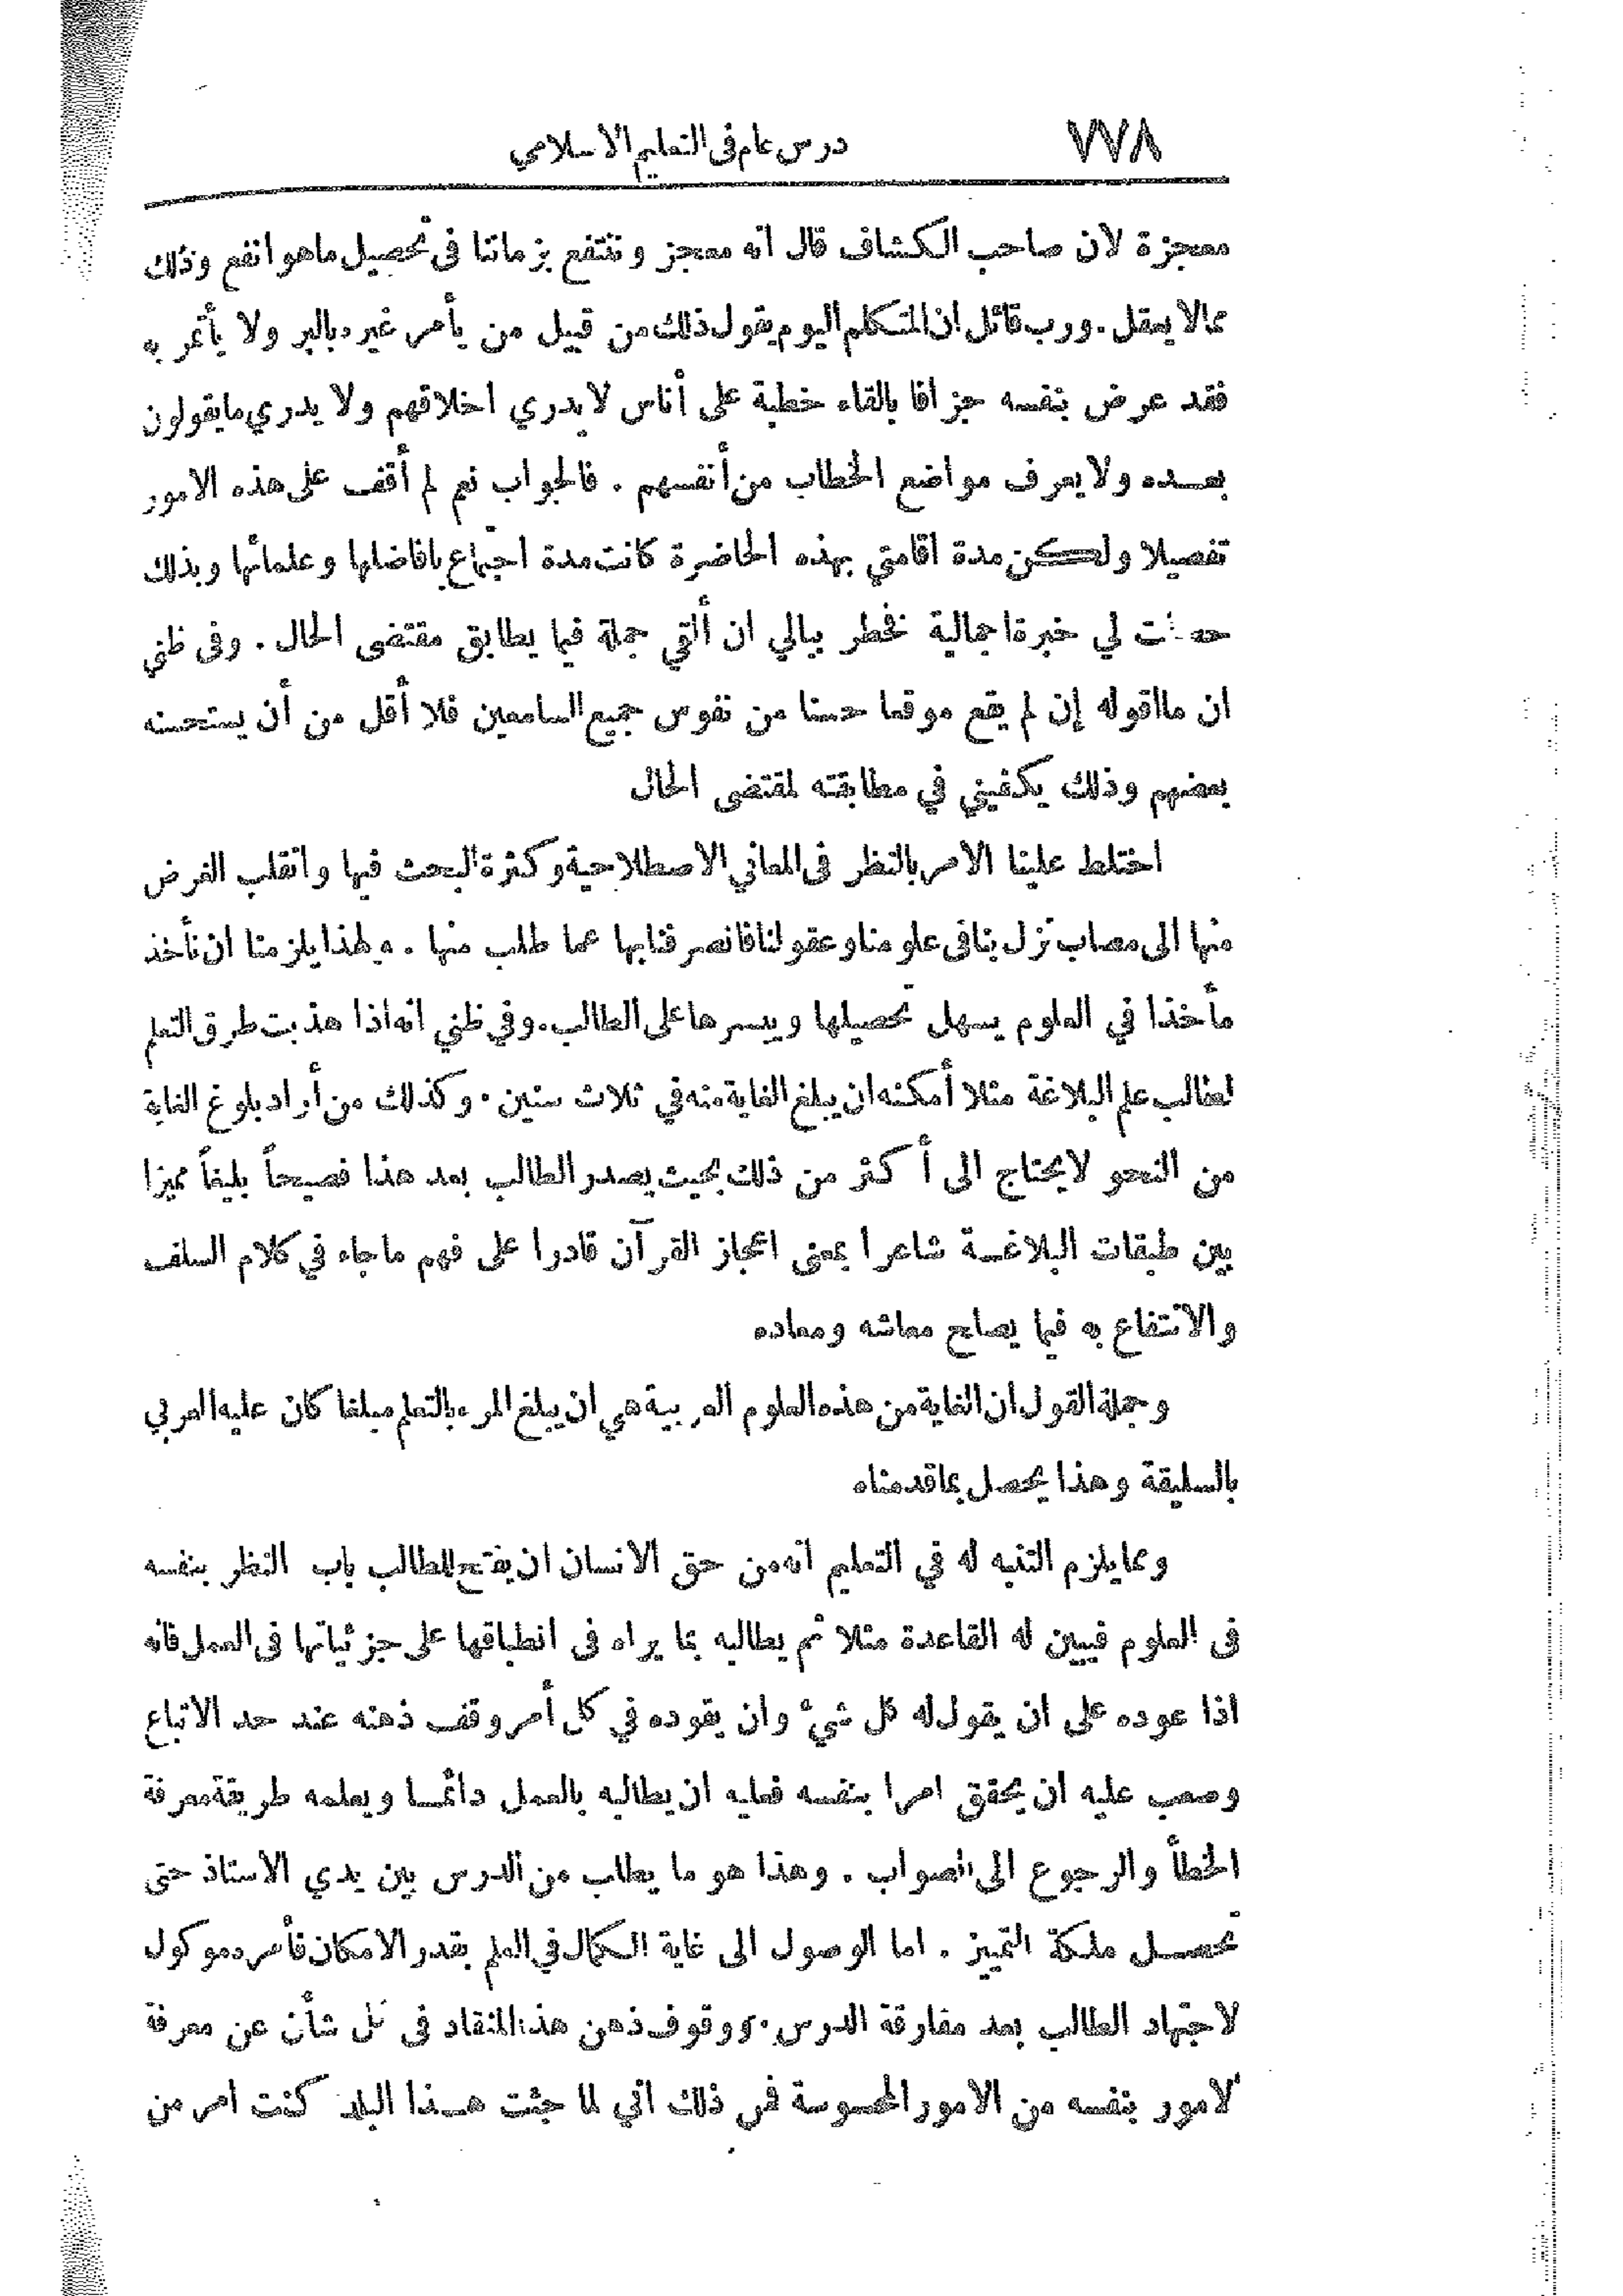 ٧٧٨ درس عام فى التعليم الاسلامي
معجزة لان صاحب الكشاف قال انه معجز وننتفع بزماننا فى تحصيل ماهو انفع وذلك
ممالا يعقل. ورب قائل ان المتكلم اليوم يقول ذلك من قبيل من يأمر غيره بالبر ولا يأتمر به
فقد عرض بنفسه جزافا بالقاء خطبة على أناس لا يدري اخلاقهم ولا يدري ما يقولون
بعده ولا يعرف مواضع الخطاب من أنفسهم. فالجواب نعم لم أقف على هذه الامور
تفصيلا ولكن مدة اقامتي بهذه الحاضرة كانت مدة اجتماع بافاضلها وعلمائها وبذلك
حصلت لي خبرة اجمالية فخطر ببالي ان ألقي جملة فيما يطابق مقتضى الحال. وفى ظني
ان ما اقوله إن لم يقع موقعا حسنا من نفوس جميع السامعين فلا أقل من أن يستحسنه
بعضهم وذلك يكفيني في مطابقته لمقتضى الحال
اختلط علينا الامر بالنظر فى المعاني الاصطلاحية وكثرة البحث فيها وانقلب الغرض
منها الى مصاب نزل بنا فى علومنا وعقولنا فانصرفنا بها عما طلب منها. ولهذا يلزمنا ان نأخذ
مأخذا في العلوم يسهل تحصيلها وييسرها على الطالب. وفي ظني انه اذا هذبت طرق التعلم
لطالب علم البلاغة مثلا أمكنه ان يبلغ الغاية منه في ثلاث سنين. وكذلك من أراد بلوغ الغاية
من النحو لا يحتاج الى أكثر من ذلك بحيث يصدر الطالب بعد هذا فصيحاً بليغاً مميزا
بين طبقات البلاغة شاعرا بمعنى اعجاز القرآن قادرا على فهم ما جاء في كلام السلف
والانتفاع به فيما يصلح معاشه ومعاده
وجملة القول ان الغاية من هذه العلوم العربية هي ان يبلغ المرء بالتعلم مبلغا كان عليه العربي
بالسليقة وهذا يحصل بما قدمناه
ومما يلزم التنبه له في التعليم انه من حق الانسان ان يفتح للطالب باب النظر بنفسه
فى العلوم فيبين له القاعدة مثلا ثم يطالبه بما يراه فى انطباقها على جزئياتها فى العمل فانه
اذا عوده على ان يقول له كل شيء وان يقوده في كل أمر وقف ذهنه عند حد الاتباع
وصعب عليه ان يحقق امرا بنفسه فعليه ان يطالبه بالعمل دائما ويعلمه طريقة معرفة
الخطأ والرجوع الى الصواب. وهذا هو ما يطلب من الدرس بين يدي الاستاذ حتى
تحصل ملكة التمييز. اما الوصول الى غاية الكمال في العلم بقدر الامكان فأمره موكول
لاجتهاد الطالب بعد مفارقة الدرس. ووقوف ذهن هذا المنقاد فى كل شأن عن معرفة
الامور بنفسه من الامور المحسوسة فمن ذلك اني لما جئت هذا البلد كنت امر من